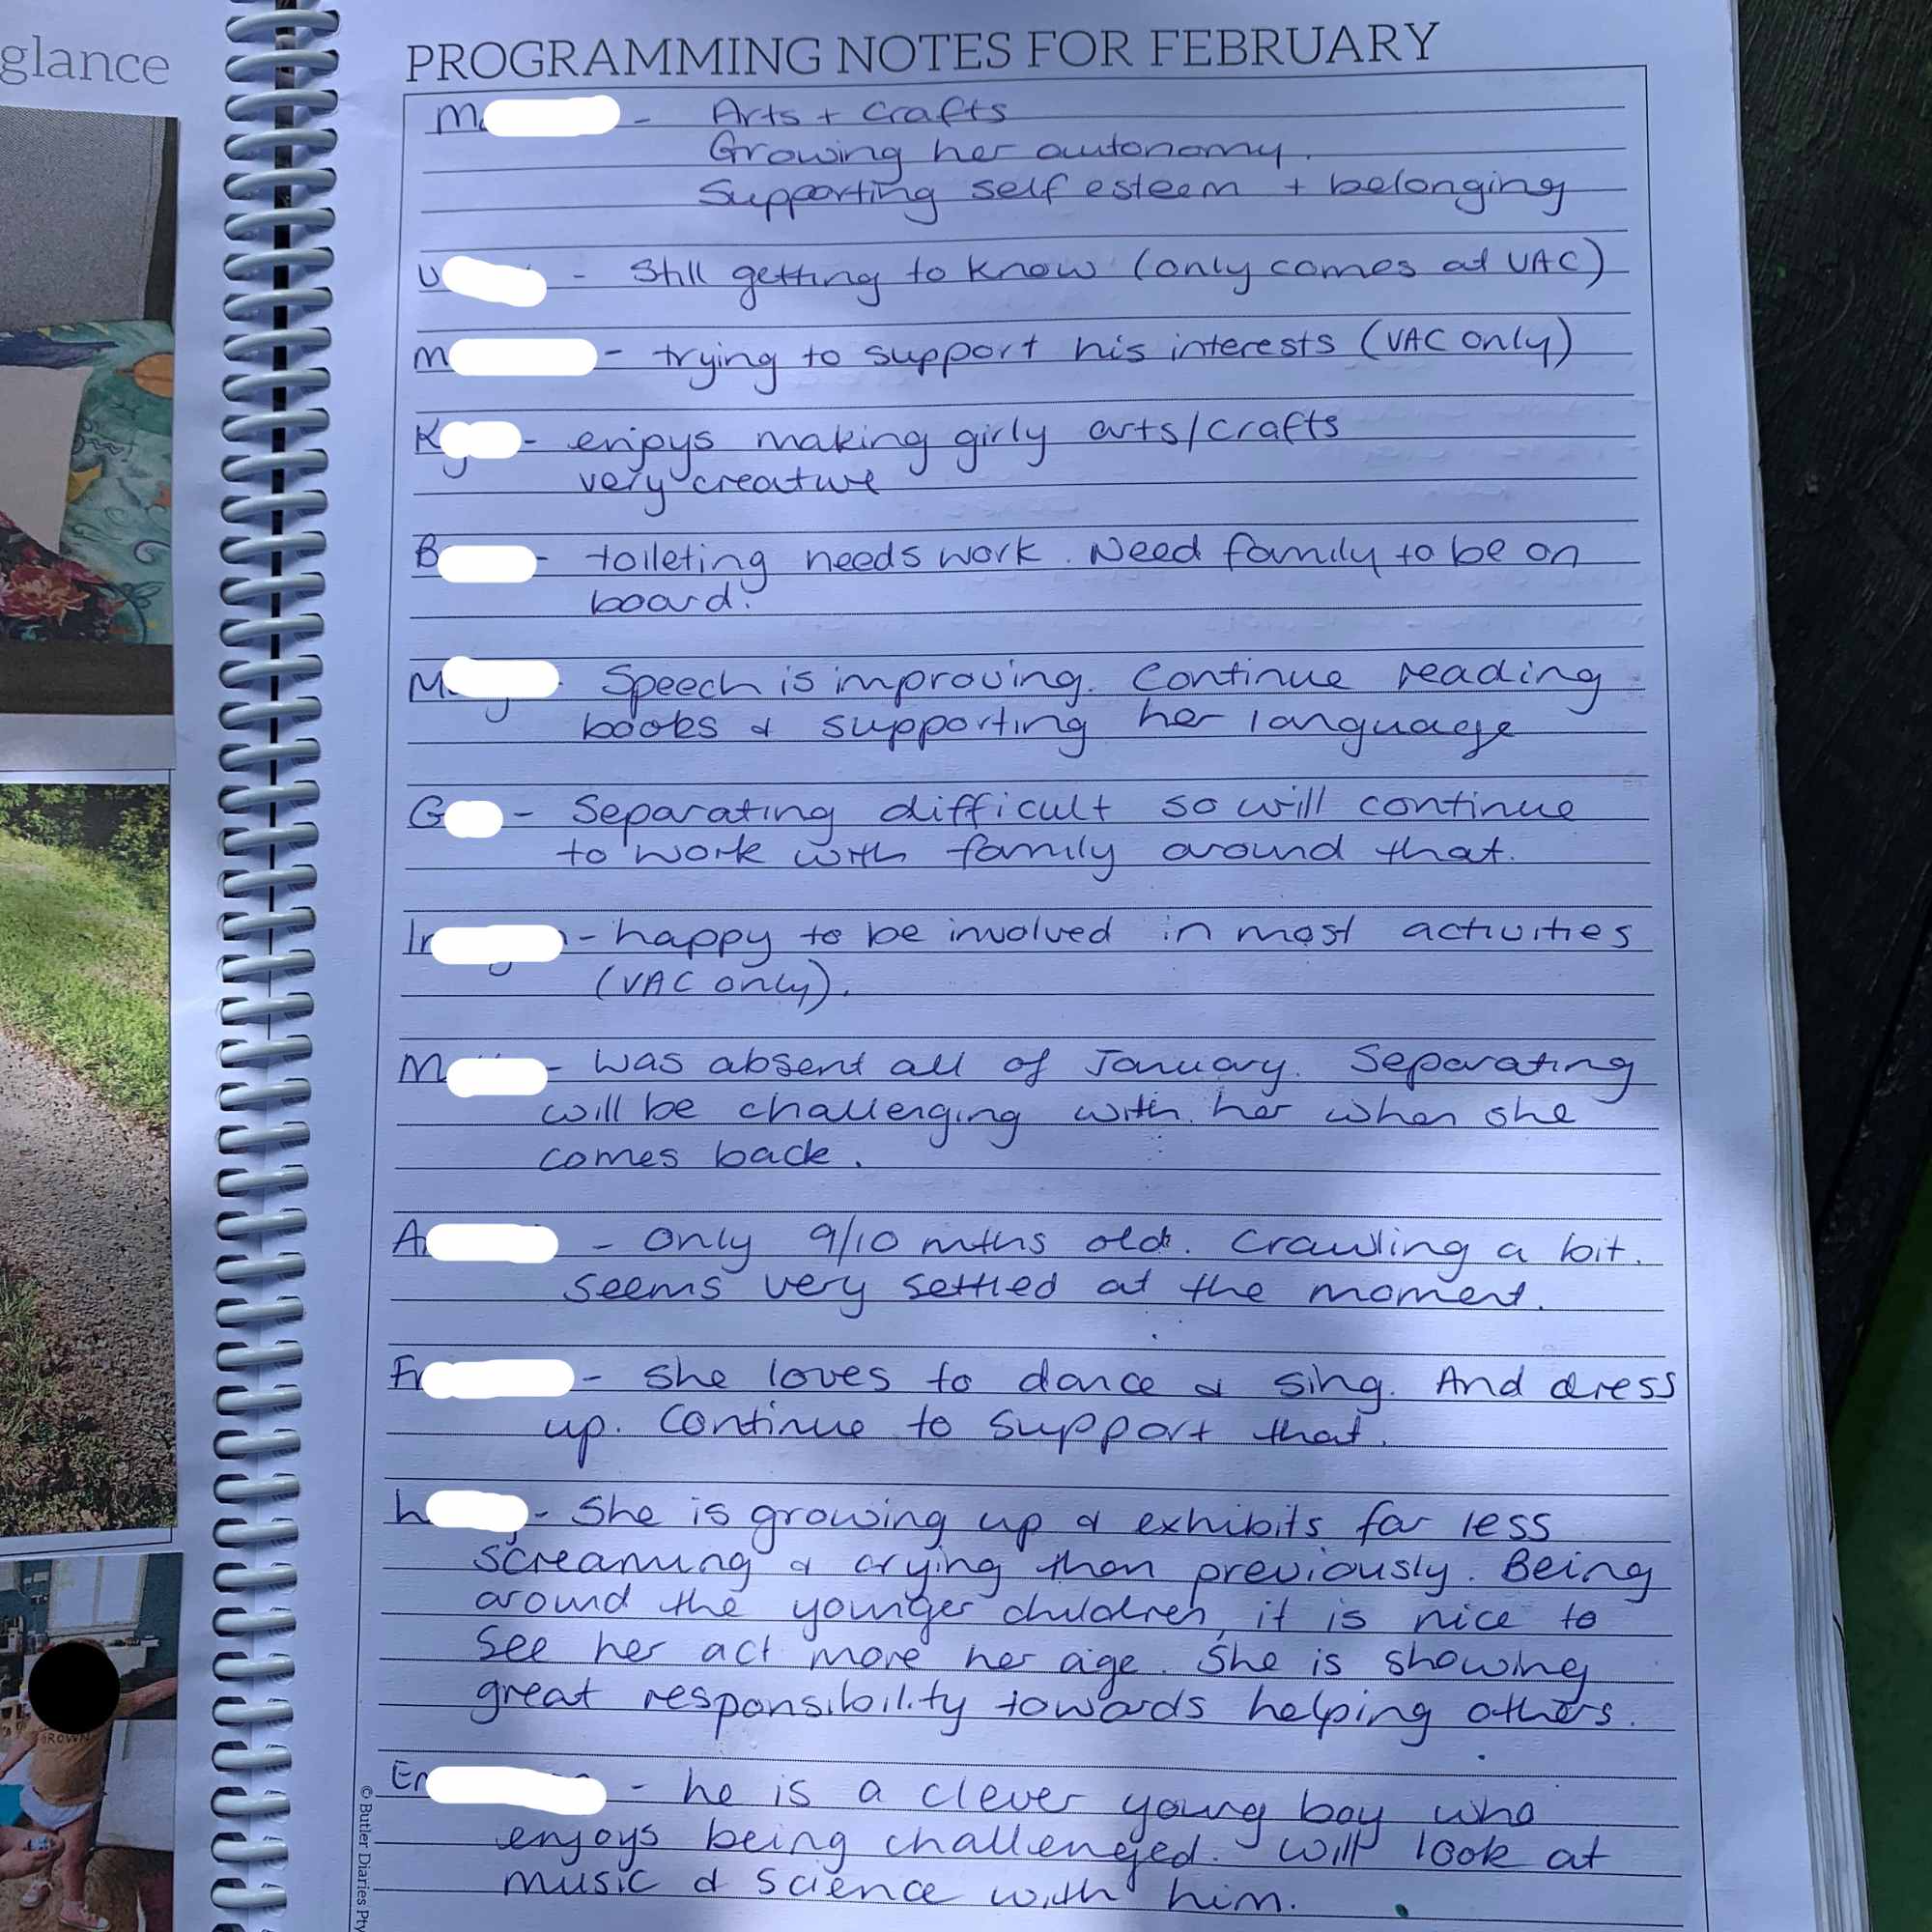 glance
PROGRAMMING NOTES FOR FEBRUARY
M - Arts + Crafts
Growing her autonomy.
Supporting self esteem + belonging
U - Still getting to know (only comes at VAC)
M - trying to support his interests (VAC only)
K - enjoys making girly arts/crafts
very creative
B - toileting needs work. Need family to be on
board.
M Speech is improving. Continue reading
books & supporting her language
G - Separating difficult so will continue
to work with family around that.
- happy to be involved in most activities
(VAC only).
M - was absent all of January. Separating
will be challenging with her when she
comes back.
A - Only 9/10 mths old. Crawling a bit.
seems very settled at the moment.
- she loves to dance & sing. And dress
up. Continue to support that.
L - She is growing up & exhibits far less
screaming & crying than previously. Being
around the younger children, it is nice to
see her act more her age. She is showing
great responsibility towards helping others.
- he is a clever young boy who
enjoys being challenged. Will look at
music & science with him.
© Butler Diaries Pty